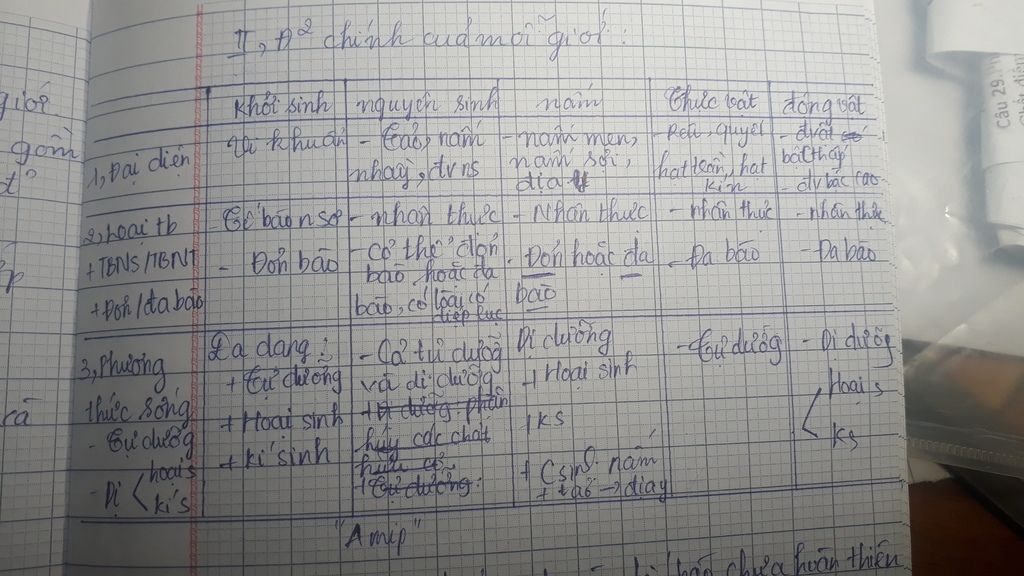 II, Đ² chính của mỗi giới:
giới
gồm
Khởi sinh
nguyên sinh
nấm
Thực vật
động vật
1, Đại diện
Vi khuẩn
- Tảo, nấm
nhầy, đvns
- nấm men,
nấm sợi,
địa y
- Rêu, quyết
hạt trần, hạt
kín
- đvật
bậc thấp
- đv bậc cao
2, Loại tb
+ TBNS/TBNT
+ Đơn/đa bào
Tế bào n sơ
- Đơn bào
- nhân thực
- Có thể đơn
bào hoặc đa
bào, có loài có
diệp lục
- Nhân thực
- Đơn hoặc đa
bào
- nhân thực
- Đa bào
- nhân thực
- Đa bào
3, Phương
thức sống
- Tự dưỡng
- Dị < hoại s
kí s
Đa dạng:
+ Tự dưỡng
+ Hoại sinh
+ kí sinh
- Cả tự dưỡng
và dị dưỡng
+ Dị dưỡng phân
hủy các chất
hữu cơ
+ Tự dưỡng
Dị dưỡng
+ Hoại sinh
+ KS
+ Csinh nấm
+ tảo → địa y
- Tự dưỡng
- Dị dưỡng
< Hoại s
KS
"Amip"
bào chưa hoàn thiện
Câu 29.